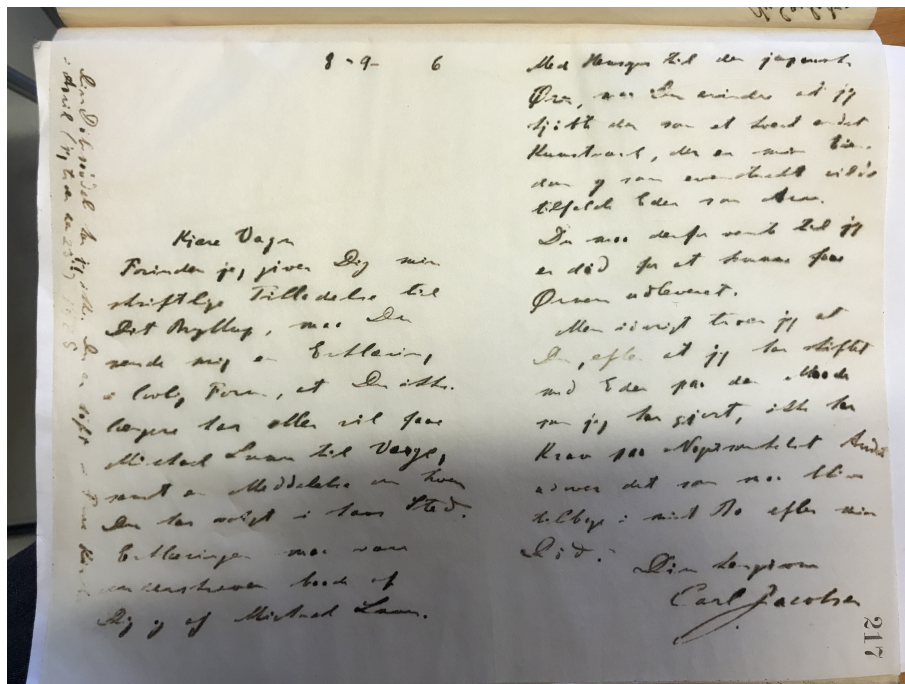 8-9- 6
Kjære Vagn
Forinden jeg giver Dig min
skriftlige Tilladelse til
Dit Bryllup, maa Du
sende mig en Erklæring
i lovlig Form, at Du ikke
længere har eller vil have
Michael Lunn til Værge,
samt en Meddelelse om hvem
Du har valgt i hans Sted.
Erklæringen maa være
underskreven baade af
Dig og af Michael Lunn.
Med Hensyn til den japanske
Ørn, maa Du erindre at jeg
kjøbte den som et hvert andet
Kunstværk, der er min Eien-
dom og som eventuelt vilde
tilfalde Eder som Arv.
Du maa derfor vente til jeg
er død for at kunne faae
Ørnen udleveret.
Men iøvrigt troer jeg at
Du, efter at jeg har skiftet
med Eder paa den Maade
som jeg har gjort, ikke har
Krav paa Nogetsomhelst Andet
udover det som maa blive
tilbage i mit Bo efter min
Død.
Din hengivne
Carl Jacobsen
217
Din Dåbsseddel har jeg ikke. Du er døbt i
i April